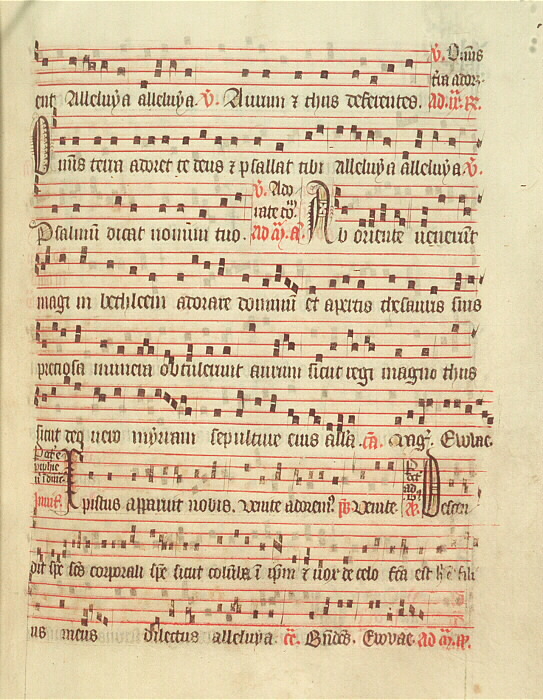 V. Omnis
terra ador
ent Alleluya alleluya V. Aurum & thus deferentes. Ad
Omnis terra adoret te deus & psallat tibi Alleluya alleluya V.
V. Ado
rate
Psalmum dicat nomini tuo. Ad Ab oriente venerunt
magi in bethleem adorare dominum et apertis thesauris suis
preciosa munera obtulerunt aurum sicut regi magno thus
sicut deo vero myrram sepulture eius alla. Magn. Evvae
Christus apparuit nobis. venite adorem9 ps Venite Descen
dit spc scs corporali spe sicut colūba ī ipm & vox de celo fca est hic ē fili
us meus dilectus alleluya. Bndcs. Evvae. Ad